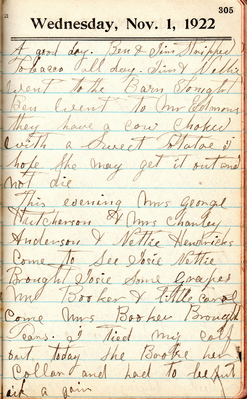 305
Wednesday, Nov. 1, 1922
A good day. Ben & Jim Stripped
Tobacco all day. Jim & Nettie
went to the Barn Tonight
Ben went to Mr
they have a cow Choked
with a Sweet Potatoe I
hope She may get it out and
not die
This evening Mrs George
Hutcherson & Mrs Charley
Anderson & Nettie Hendricks
Come to See Josie Nettie
Brought Josie Some Grapes
Mr Booker & little Carol
Come Mrs Booker Brought
Pears. I Tied my calf
out today She Booke her
Collar and had to be put
a gain